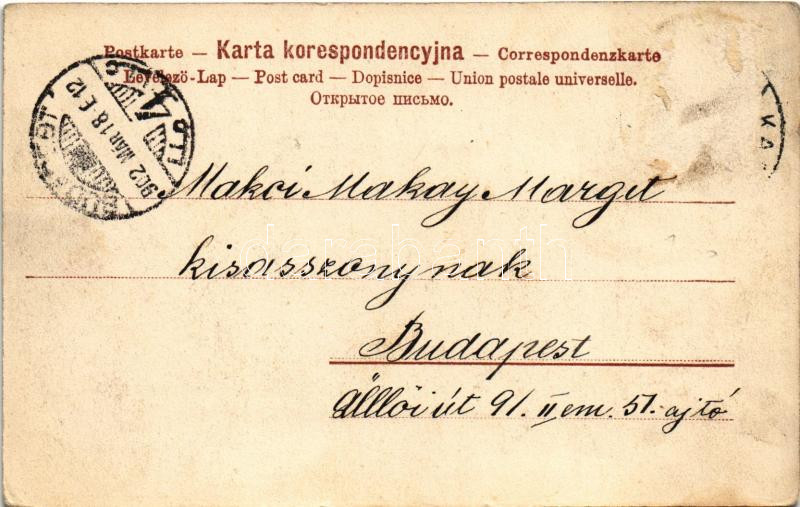 Postkarte — Karta korespondencyjna — Correspondenzkarte
Levelező-Lap — Post card — Dopisnice — Union postale universelle.
Открытое письмо.
902 MÁR 18 E 12
KA
Makci Makay Margit
kisasszonynak
Budapest
Üllői út 91. II em. 51. ajtó